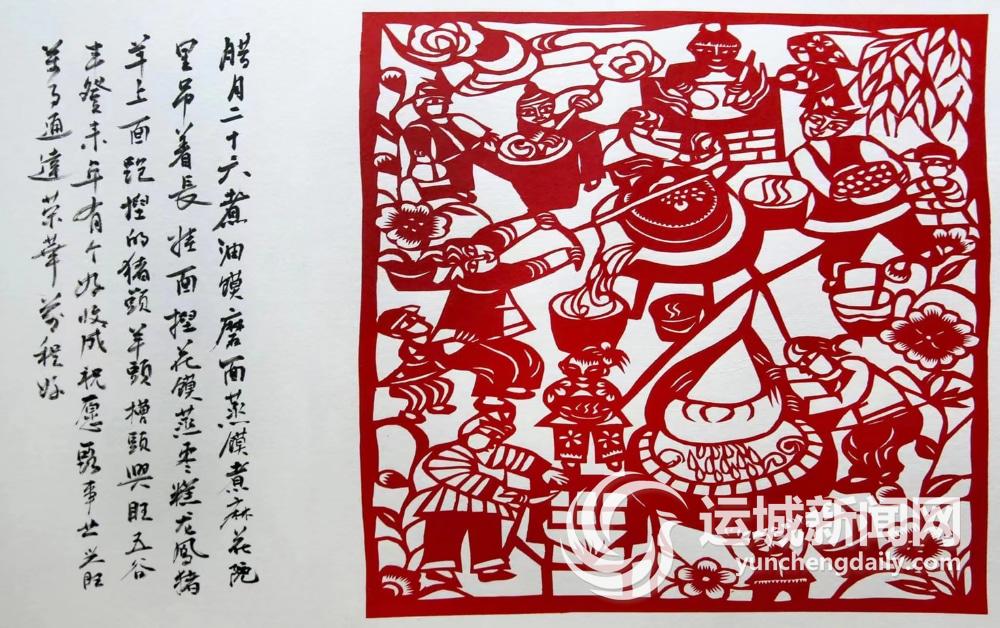 腊月二十六煮油馍磨面蒸馍煮麻花院
里吊着長挂面捏花馍蒸枣糕龙鳳猪
羊上面跑捏的猪頭羊頭槽頭興旺五谷
丰登来年有个好收成祝愿事业兴旺
万事通達荣華前程好
运城新闻网
yunchengdaily.com